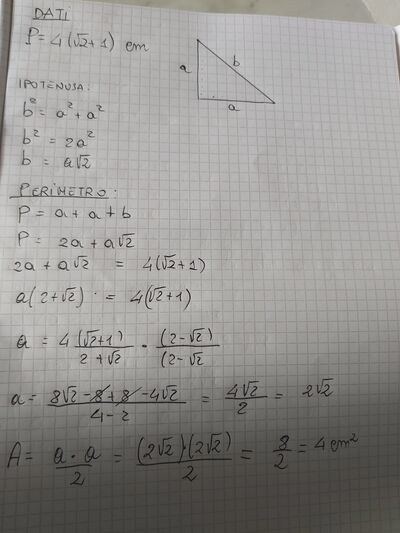 DATI
P = 4(√2+1) cm
a
b
a
IPOTENUSA:
b² = a² + a²
b² = 2a²
b = a√2
PERIMETRO:
P = a + a + b
P = 2a + a√2
2a + a√2 = 4(√2+1)
a(2+√2) = 4(√2+1)
a = 4(√2+1)/(2+√2) · (2-√2)/(2-√2
a = (8√2 - 8 + 8 - 4√2)/(4-2) = 4√2/2 = 2√2
A = a·a/2 = (2√2)(2√2)/2 = 8/2 = 4 cm²